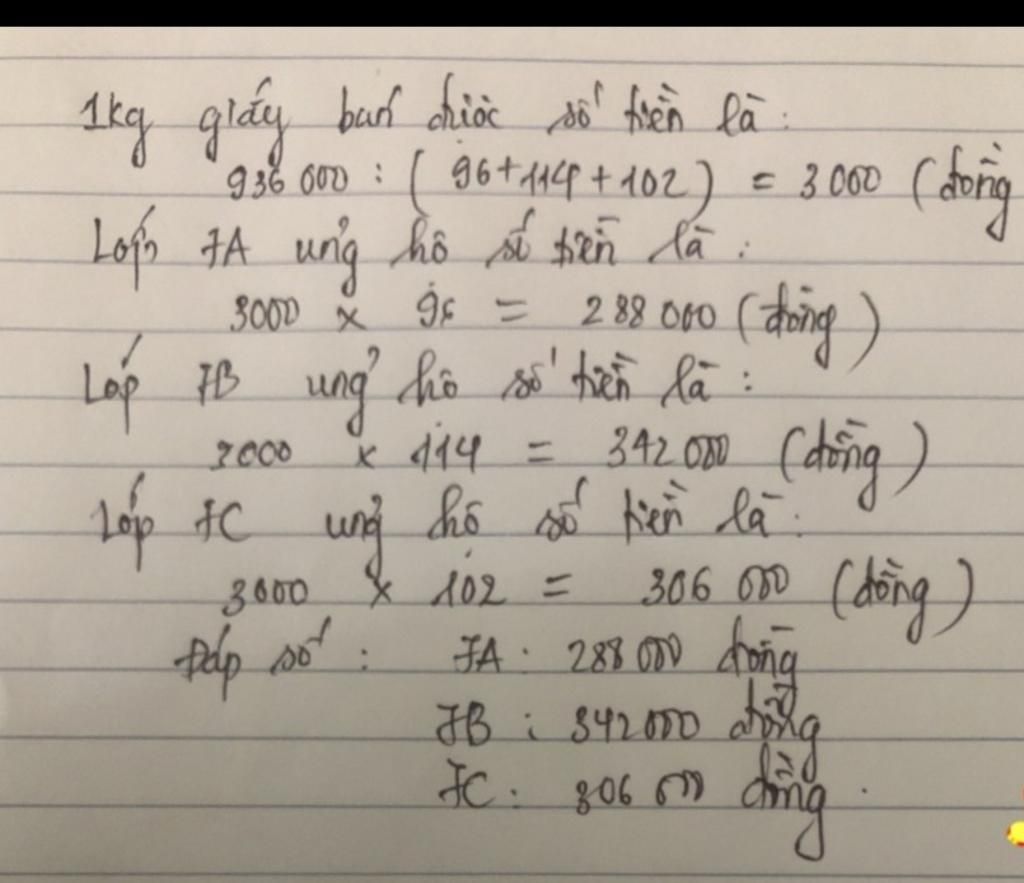 1kg giấy bán được số tiền là:
936 000 : ( 96+114+102 ) = 3 000 (đồng
Lớp 7A ủng hộ số tiền là :
3000 x 96 = 288 000 (đồng)
Lớp 7B ủng hộ số tiền là :
3000 x 114 = 342 000 (đồng)
Lớp 7C ủng hộ số tiền là :
3000 x 102 = 306 000 (đồng)
Đáp số : 7A : 288 000 đồng
7B : 342 000 đồng
7C : 306 000 đồng .